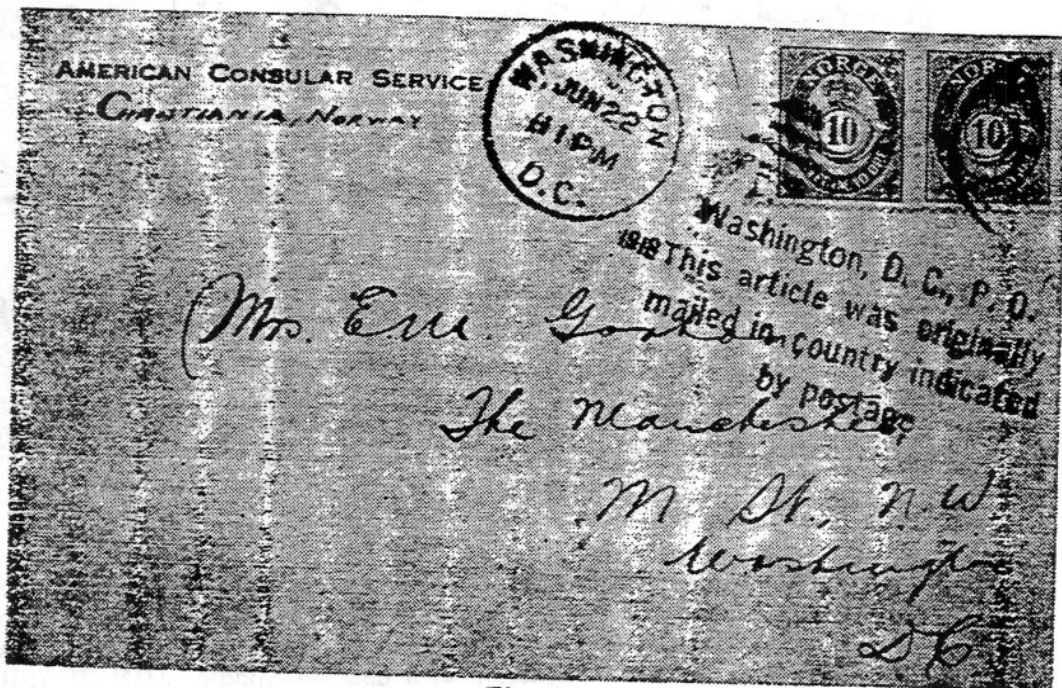 AMERICAN CONSULAR SERVICE
CHRISTIANIA, NORWAY
WASHINGTON
JUN 22
81PM
D.C.
NORGE
10
NORGE
10
Washington, D. C., P. O.
1818 This article was originally
mailed in country indicated
by postage
Mrs. E.M.
The Manchester
M St., N.W
Washington
D C